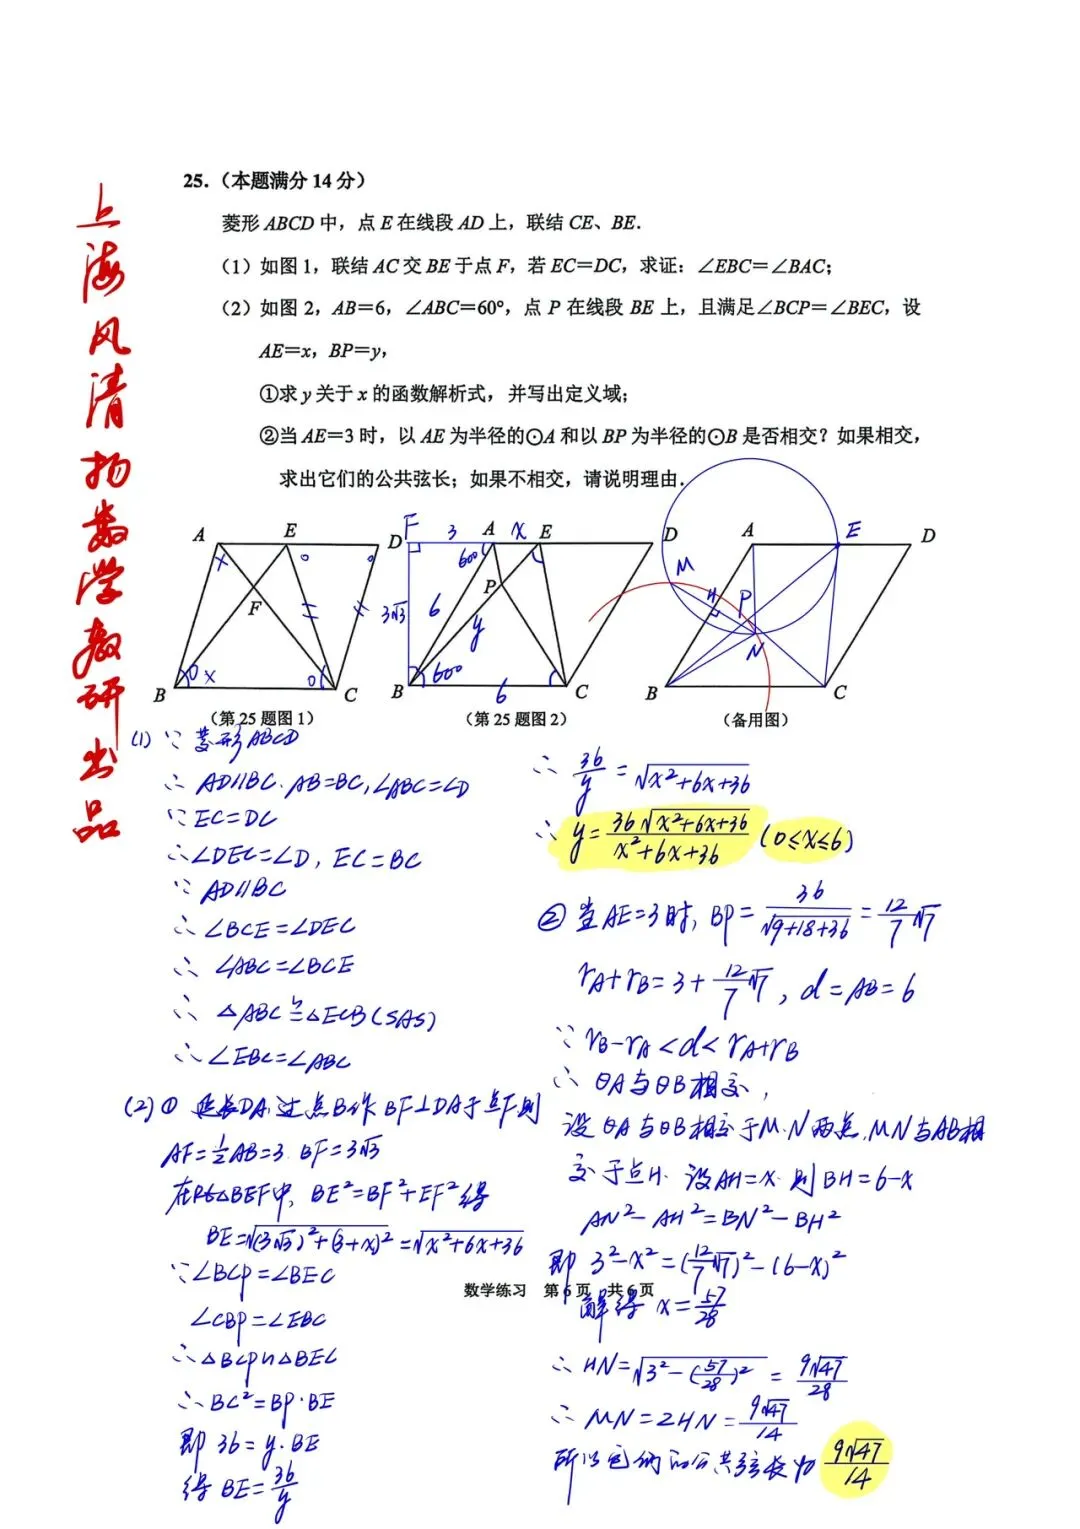 上海风清扬数学教研出品
25.（本题满分 14 分）
菱形 ABCD 中，点 E 在线段 AD 上，联结 CE、BE.
（1）如图 1，联结 AC 交 BE 于点 F，若 EC＝DC，求证：∠EBC＝∠BAC；
（2）如图 2，AB＝6，∠ABC＝60°，点 P 在线段 BE 上，且满足∠BCP＝∠BEC，设
AE＝x，BP＝y，
①求 y 关于 x 的函数解析式，并写出定义域；
②当 AE＝3 时，以 AE 为半径的⊙A 和以 BP 为半径的⊙B 是否相交？如果相交，
求出它们的公共弦长；如果不相交，请说明理由.
A E D
F
B C
x o o
o x o
（第 25 题图 1）
F 3 A x E D
60° P
3√3 6 y
B 60° 6 C
（第 25 题图 2）
A E D
M H P N
B C
（备用图）
(1) ∵ 菱形ABCD
∴ AD∥BC. AB=BC, ∠ABC=∠D
∵ EC=DC
∴ ∠DEC=∠D, EC=BC
∵ AD∥BC
∴ ∠BCE=∠DEC
∴ ∠ABC=∠BCE
∴ △ABC≌△ECB(SAS)
∴ ∠EBC=∠ABC
(2) ① 延长DA,过点B作BF⊥DA于点F,则
AF=1/2AB=3. BF=3√3
在Rt△BEF中, BE²=BF²+EF²得
BE=√((3√3)²+(3+x)²)=√(x²+6x+36)
∵ ∠BCP=∠BEC
∠CBP=∠EBC
∴ △BCP∽△BEC
∴ BC²=BP·BE
即 36=y·BE
得 BE=36/y
∴ 36/y=√(x²+6x+36)
∴ y=36√(x²+6x+36)/(x²+6x+36) (0≤x≤6)
② 当AE=3时, BP=36/√(9+18+36)=12/7√7
rA+rB=3+12/7√7, d=AB=6
∵ rB-rA<d<rA+rB
∴ ⊙A与⊙B相交,
设⊙A与⊙B相交于M.N两点,MN与AB相
交于点H. 设AH=x. 则BH=6-x
AN²-AH²=BN²-BH²
即 3²-x²=(12/7√7)²-(6-x)²
解得 x=57/28
∴ HN=√(3²-(57/28)²)=9√47/28
∴ MN=2HN=9√47/14
所以它们的公共弦长为 9√47/14
数学练习 第 6 页 共 6 页